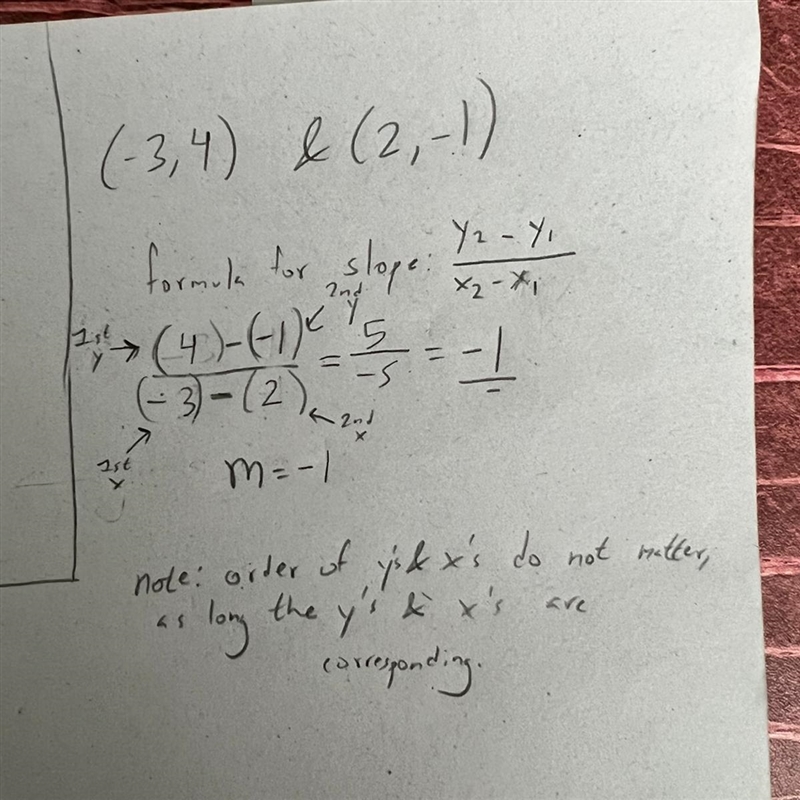 (-3,4) & (2,-1)
formula for slope: y2 - y1 / x2 - x1
2nd y
1st y → (4)-(-1) / (-3)-(2) = 5 / -5 = -1
1st x
2nd x
m = -1
note: order of y's & x's do not matter,
as long the y's & x's are
corresponding.